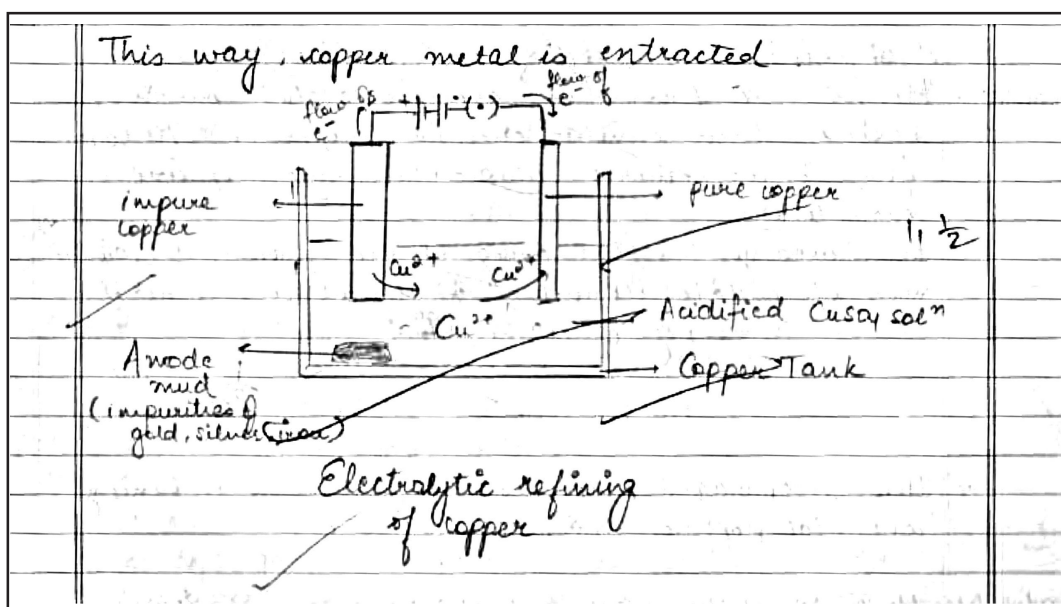 This way, copper metal is extracted.
flow of
e⁻
+
flow of
e⁻
impure
copper
pure copper
1 1/2
Cu²⁺
Cu²⁺
Cu²⁺
Acidified CuSO₄ solⁿ
Anode
mud
(impurities of
gold, silver (iron)
Copper Tank
Electrolytic refining
of copper